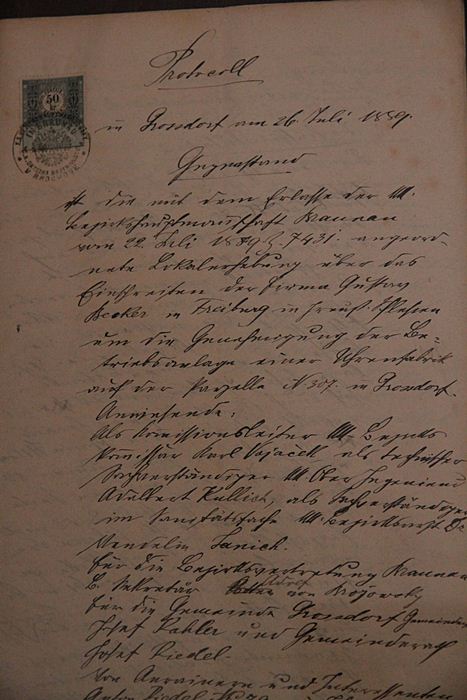 Protocoll
50
in Grossdorf am 26. Juli 1889.
Gegenstand
ist die mit dem Erlasse der kk.
Bezirkshauptmannschaft Braunau
vom 22. Juli 1889 Z. 7431. angeord-
nete Lokalerhebung über das
Einschreiten der Firma Gustav
Becker in Freiburg in preuss. Schlesien
um die Genehmigung der Be-
triebsanlage einer Uhrenfabrik
auf der Parzelle N 307. in Grossdorf.
Anwesende:
Als Kommissionsleiter kk. Bezirks
Kommissär Karl als technischer
Sachverständiger kk Ober Ingenieur
Adalbert als Sachverständiger
im Sanitätsfache kk. Bezirksarzt Dr
Wendelin Janich.
Für die Bezirksvertretung Braunau
B. Sekretär von
Für die Gemeinde Grossdorf Gemeinde
Josef Kahler und Gemeinderath
Josef Riedel.
Von Anrainern und Interessenten
Anton Riedel